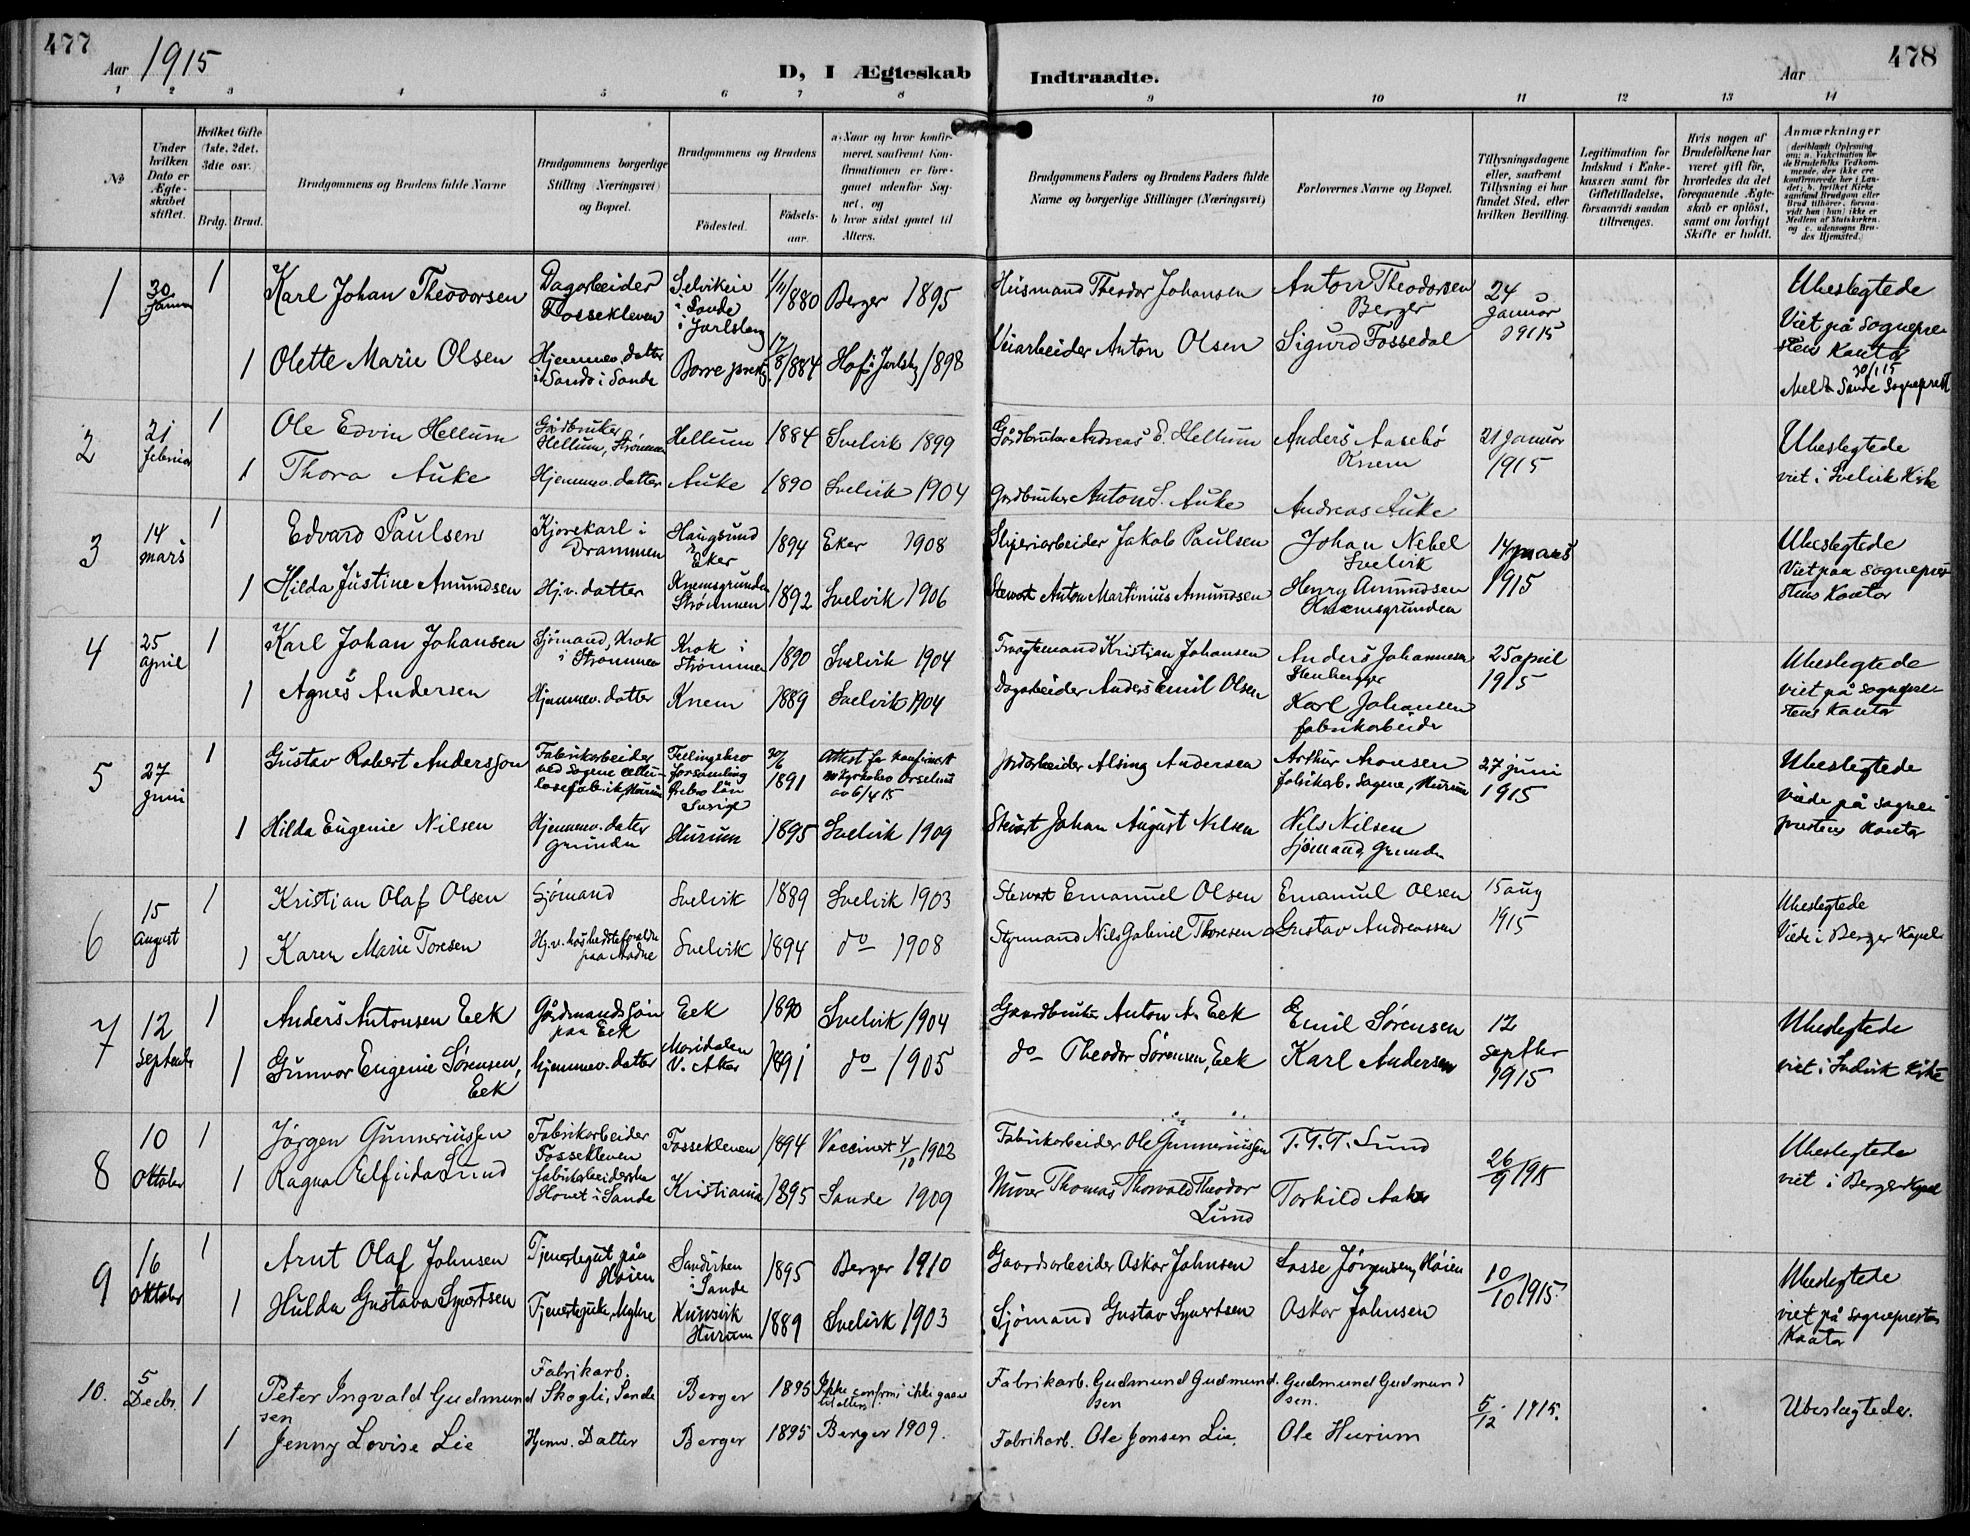 477
Aar 1915
D, I Ægteskab
Indtraadte.
Aar
478
1 2 3 4 5 6 7 8 9 10 11 12 13 14
No
Under hvilken Dato er Ægteskabet stiftet.
Hvilket Gifte (1ste, 2det, 3die osv.)
Brdg. Brud.
Brudgommens og Brudens fulde Navne
Brudgommens borgerlige Stilling (Næringsvei) og Bopæl.
Brudgommens og Brudens
Fødested.
Fødselsaar.
a. Naar og hvor konfirmeret, saafremt Konfirmationen er foregaaet udenfor Sognet, og
b. hvor sidst gaaet til Alters.
Brudgommens Faders og Brudens Faders fulde Navne og borgerlige Stillinger (Næringsvei)
Forlovernes Navne og Bopæl.
Tillysningsdagene eller, saafremt Tillysning ei har fundet Sted, efter hvilken Bevilling.
Legitimation for Indskud i Enkekassen samt for Giftetilladelse, forsaavidt saadan tiltrænges.
Hvis nogen af Brudefolkene har været gift før, hvorledes da det foregaaende Ægteskab er opløst, samt om lovligt Skifte er holdt.
Anmærkninger (deriblandt Oplysning om: a. Vaksination for de Brudefolks Vedkommende, der ikke ere konfirmerede her i Landet; b. hvilket Kirkesamfund Brudgom eller Brud tilhører, forsaavidt han (hun) ikke er Medlem af Statskirken, og c. udensogns Brudes Hjemsted.)
1 30 Januar 1 Karl Johan Theodorsen Dagarbeider Fossekleven Selvikeie i Sande i Jarlsberg 1880 Berger 1895 Husmand Theodor Johansen Anton Theodorsen Berger 24 Januar 1915 Ubeslegtede Viet på Sogneprestens Kontor 30/1 15
1 Olette Marie Olsen Hjemmev. datter i Sande i Sande Borre prestg. 1884 Hof i Jarlsbg 1898 Veiarbeider Anton Olsen Sigurd Fossedal Sande Sogneprest
2 21 februar 1 Ole Edvin Hellum Gårdbruker Hellum, Strømmen Hellum 1884 Svelvik 1899 Gårdbruker Andreas E. Hellum Anders Aasebø Knem 21 Januar 1915 Ubeslegtede viet i Svelvik Kirke
1 Thora Auke Hjemmev. datter Auke 1890 Svelvik 1904 Gårdbruker Anton S. Auke Andreas Auke
3 14 mars 1 Edvard Paulsen Kjørekarl i Drammen Haugsund Eker 1894 Eker 1908 Sliperiarbeider Jakob Paulsen Johan Nebel Svelvik 14 mars 1915 Ubeslegtede Viet paa Sogneprestens Kontor
1 Hilda Justine Amundsen Hj.v. datter Knemsgrunden Strømmen 1892 Svelvik 1906 Stewart Anton Martinius Amundsen Henry Amundsen Knemsgrunden
4 25 April 1 Karl Johan Johansen Sjømand, Krok i Strømmen Krok i Strømmen 1890 Svelvik 1904 Kristian Johansen Anders Johannesen Stenberggr 25 april 1915 Ubeslegtede viet på Sogneprestens Kontor
1 Agnes Andersen Hjemmev. datter Knem 1889 Svelvik 1904 Dagarbeider Anders Emil Olsen Karl Johansen fabrikarbeider
5 27 Juni 1 Gustav Robert Andersson Fabrikarbeider ved Sagene cellulosefabrik, Hurum forsamling Örebro län Sverige 30/6 1891 Attest for konfirmert av 6/4 15 Jordarbeider Alsing Andersen Arthur Aronsen fabrikarb. Sagene, Hurum 27 juni 1915 Ubeslegtede Viede på Sogneprestens Kontor
1 Hilda Eugenie Nilsen Hjemmev. dater Grunden Hurum 1895 Svelvik 1909 Stewart Johan August Nilsen Nils Nilsen Sjømand, Grunden
6 15 August 1 Kristian Olaf Olsen Sjømand Svelvik 1889 Svelvik 1903 Stewart Emanuel Olsen Emanuel Olsen 15 aug 1915 Ubeslegtede Viede i Berger Kapel
1 Karen Marie Toresen Hj.v. hos bedsteforældre paa Nødne Svelvik 1894 do 1908 Styrmand Nils Gabriel Thoresen Gustav Andreassen
7 12 September 1 Anders Antonsen Eek Gårdmandssøn paa Eek Eek 1890 Svelvik 1904 Gaardbruker Anton A. Eek Emil Sørensen 12 septbr 1915 Ubeslegtede viet i Svelvik Kirke
1 Gunvor Eugenie Sørensen, Eek Hjemmev. datter Maridalen V. Aker 1891 do 1905 do Theodor Sørensen, Eek Karl Andersen
8 10 Oktober 1 Jørgen Gunneriussen Fabrikarbeider Fossekleven Fossekleven 1894 Vaccinert 4/10 1902 Fabrikarbeider Ole Gunneriussen T. T. T. Lund 26/9 1915 Ubeslegtede viet i Berger Kapel
1 Ragna Elfrida Lund fabrikarbeiderske Hovet i Sande Kristiania 1895 Sande 1909 Murer Thomas Thorvald Theodor Lund Torkild Aaker
9 16 Oktober 1 Arnt Olaf Johnsen Tjenestegut på Høien Sandviken i Sande 1895 Berger 1910 Gaardsarbeider Oskar Johnsen Lasse Jørgensen, Høien 10/10 1915. Ubeslegtede viet på Sogneprestens Kontor
1 Hulda Gustava Syvertsen Tjenestepike, Hurum 1889 Svelvik 1903 Sjømand Gustav Syvertsen Oskar Johnsen
10. 5 Decbr. 1 Peter Ingvald Gudmundsen Fabrikarb. Skogli, Sande Berger 1895 Ikke confirm. ikke gaaet til alters. Fabrikarb. Gudmund Gudmundsen Gudmund Gudmundsen. 5/12 1915. Ubeslægtede.
1 Jenny Lovise Lie Hjemv. Datter Berger 1895 Berger 1909. Fabrikarb. Ole Jonsen Lie. Ole Hurum